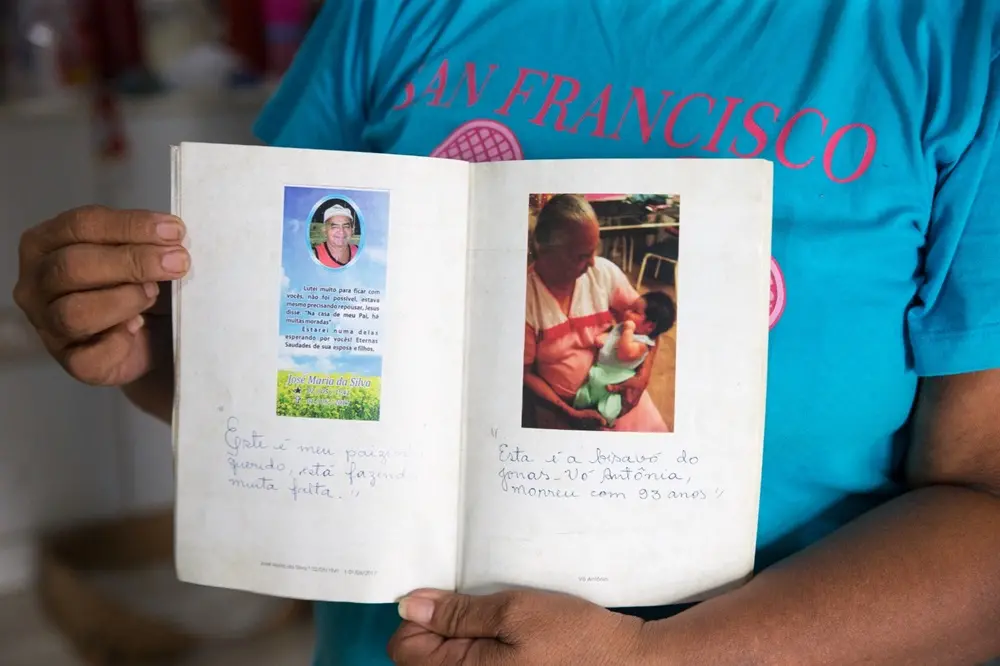 SAN FRANCISCO
Lutei muito para ficar com
vocês, não foi possível, estava
mesmo precisando repousar, Jesus
disse: "Na casa de meu Pai, há
muitas moradas"
Estarei numa delas
esperando por vocês! Eternas
Saudades de sua esposa e filhos.
José Maria da Silva
"Este é meu paizin
querido, está fazend
muita falta."
"Esta é a bisavó do
Jonas - Vó Antônia,
morreu com 93 anos"
José Maria da Silva
Vó Antônia